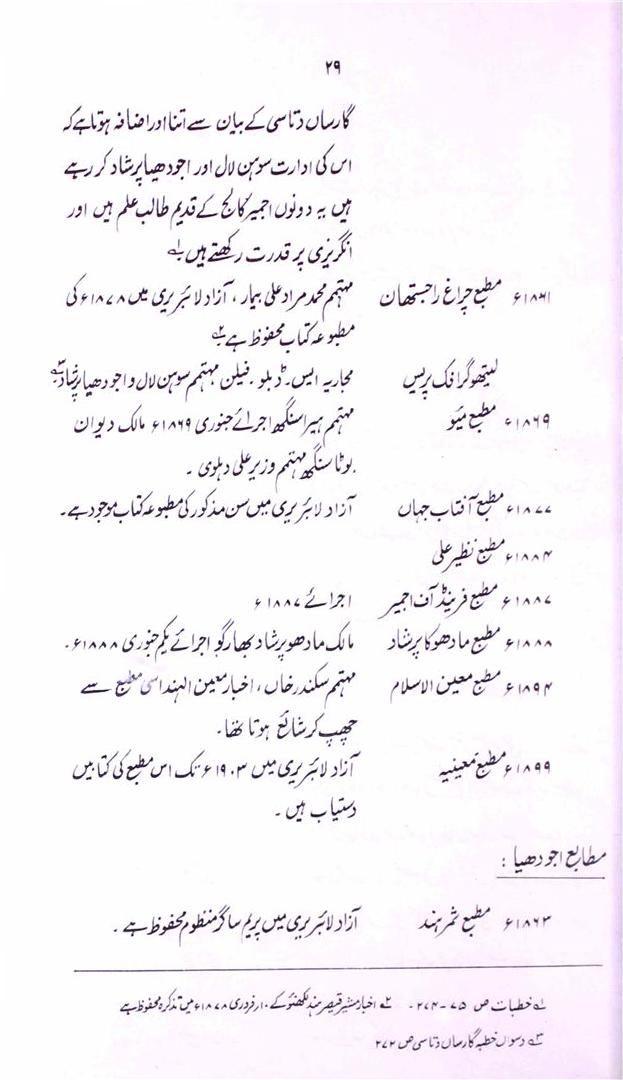 ۲۹
گارساں دتاسی کے بیان سے اتنا اور اضافہ ہوتا ہے کہ
اس کی ادارت سوہن لال اور اجودھیا پرشاد کر رہے
ہیں یہ دونوں اجمیر کالج کے قدیم طالب علم ہیں اور
انگریزی پر قدرت رکھتے ہیں ؎۱
۱۸۶۱ء مطبع چراغ راجستھان مہتمم محمد مراد علی بیمار، آزاد لائبریری میں ۱۸۷۸ء کی
مطبوعہ کتاب محفوظ ہے ؎۲
لیتھوگرافک پریس مجاریہ ایس۔ ڈبلو۔ فیلن مہتمم سوہن لال و اجودھیا پرشاد ؎۳
۱۸۶۹ء مطبع میئو مہتمم ہیرا سنگھ اجرائے جنوری ۱۸۶۹ء مالک دیوان
بوٹا سنگھ مہتمم وزیر علی دہلوی ۔
۱۸۷۷ء مطبع آفتاب جہاں آزاد لائبریری میں سن مذکور کی مطبوعہ کتاب موجود ہے۔
۱۸۸۴ء مطبع نظیر علی
۱۸۸۷ء مطبع فرینڈ آف اجمیر اجرائے ۱۸۸۷ء
۱۸۸۸ء مطبع مادھوکا پرشاد مالک مادھو پرشاد بھارگو اجرائے یکم جنوری ۱۸۸۸ء۔
۱۸۹۴ء مطبع معین الاسلام مہتمم سکندر خاں، اخبار معین الہند اسی مطبع سے
چھپ کر شائع ہوتا تھا۔
۱۸۹۹ء مطبع معینیہ آزاد لائبریری میں ۱۹۰۳ء تک اس مطبع کی کتابیں
دستیاب ہیں ۔
مطابع اجودھیا :
۱۸۶۳ء مطبع ثمر ہند آزاد لائبریری میں پریم ساگر منظوم محفوظ ہے ۔
؎۱ خطبات ص ۷۵-۲۷۴۔ ؎۲ اخبار مشیر قیصر ہند لکھنؤ کے ۱۰ فروری ۱۸۷۸ء میں تذکرہ محفوظ ہے
؎۳ دسواں خطبہ گارساں دتاسی ص ۲۷۲